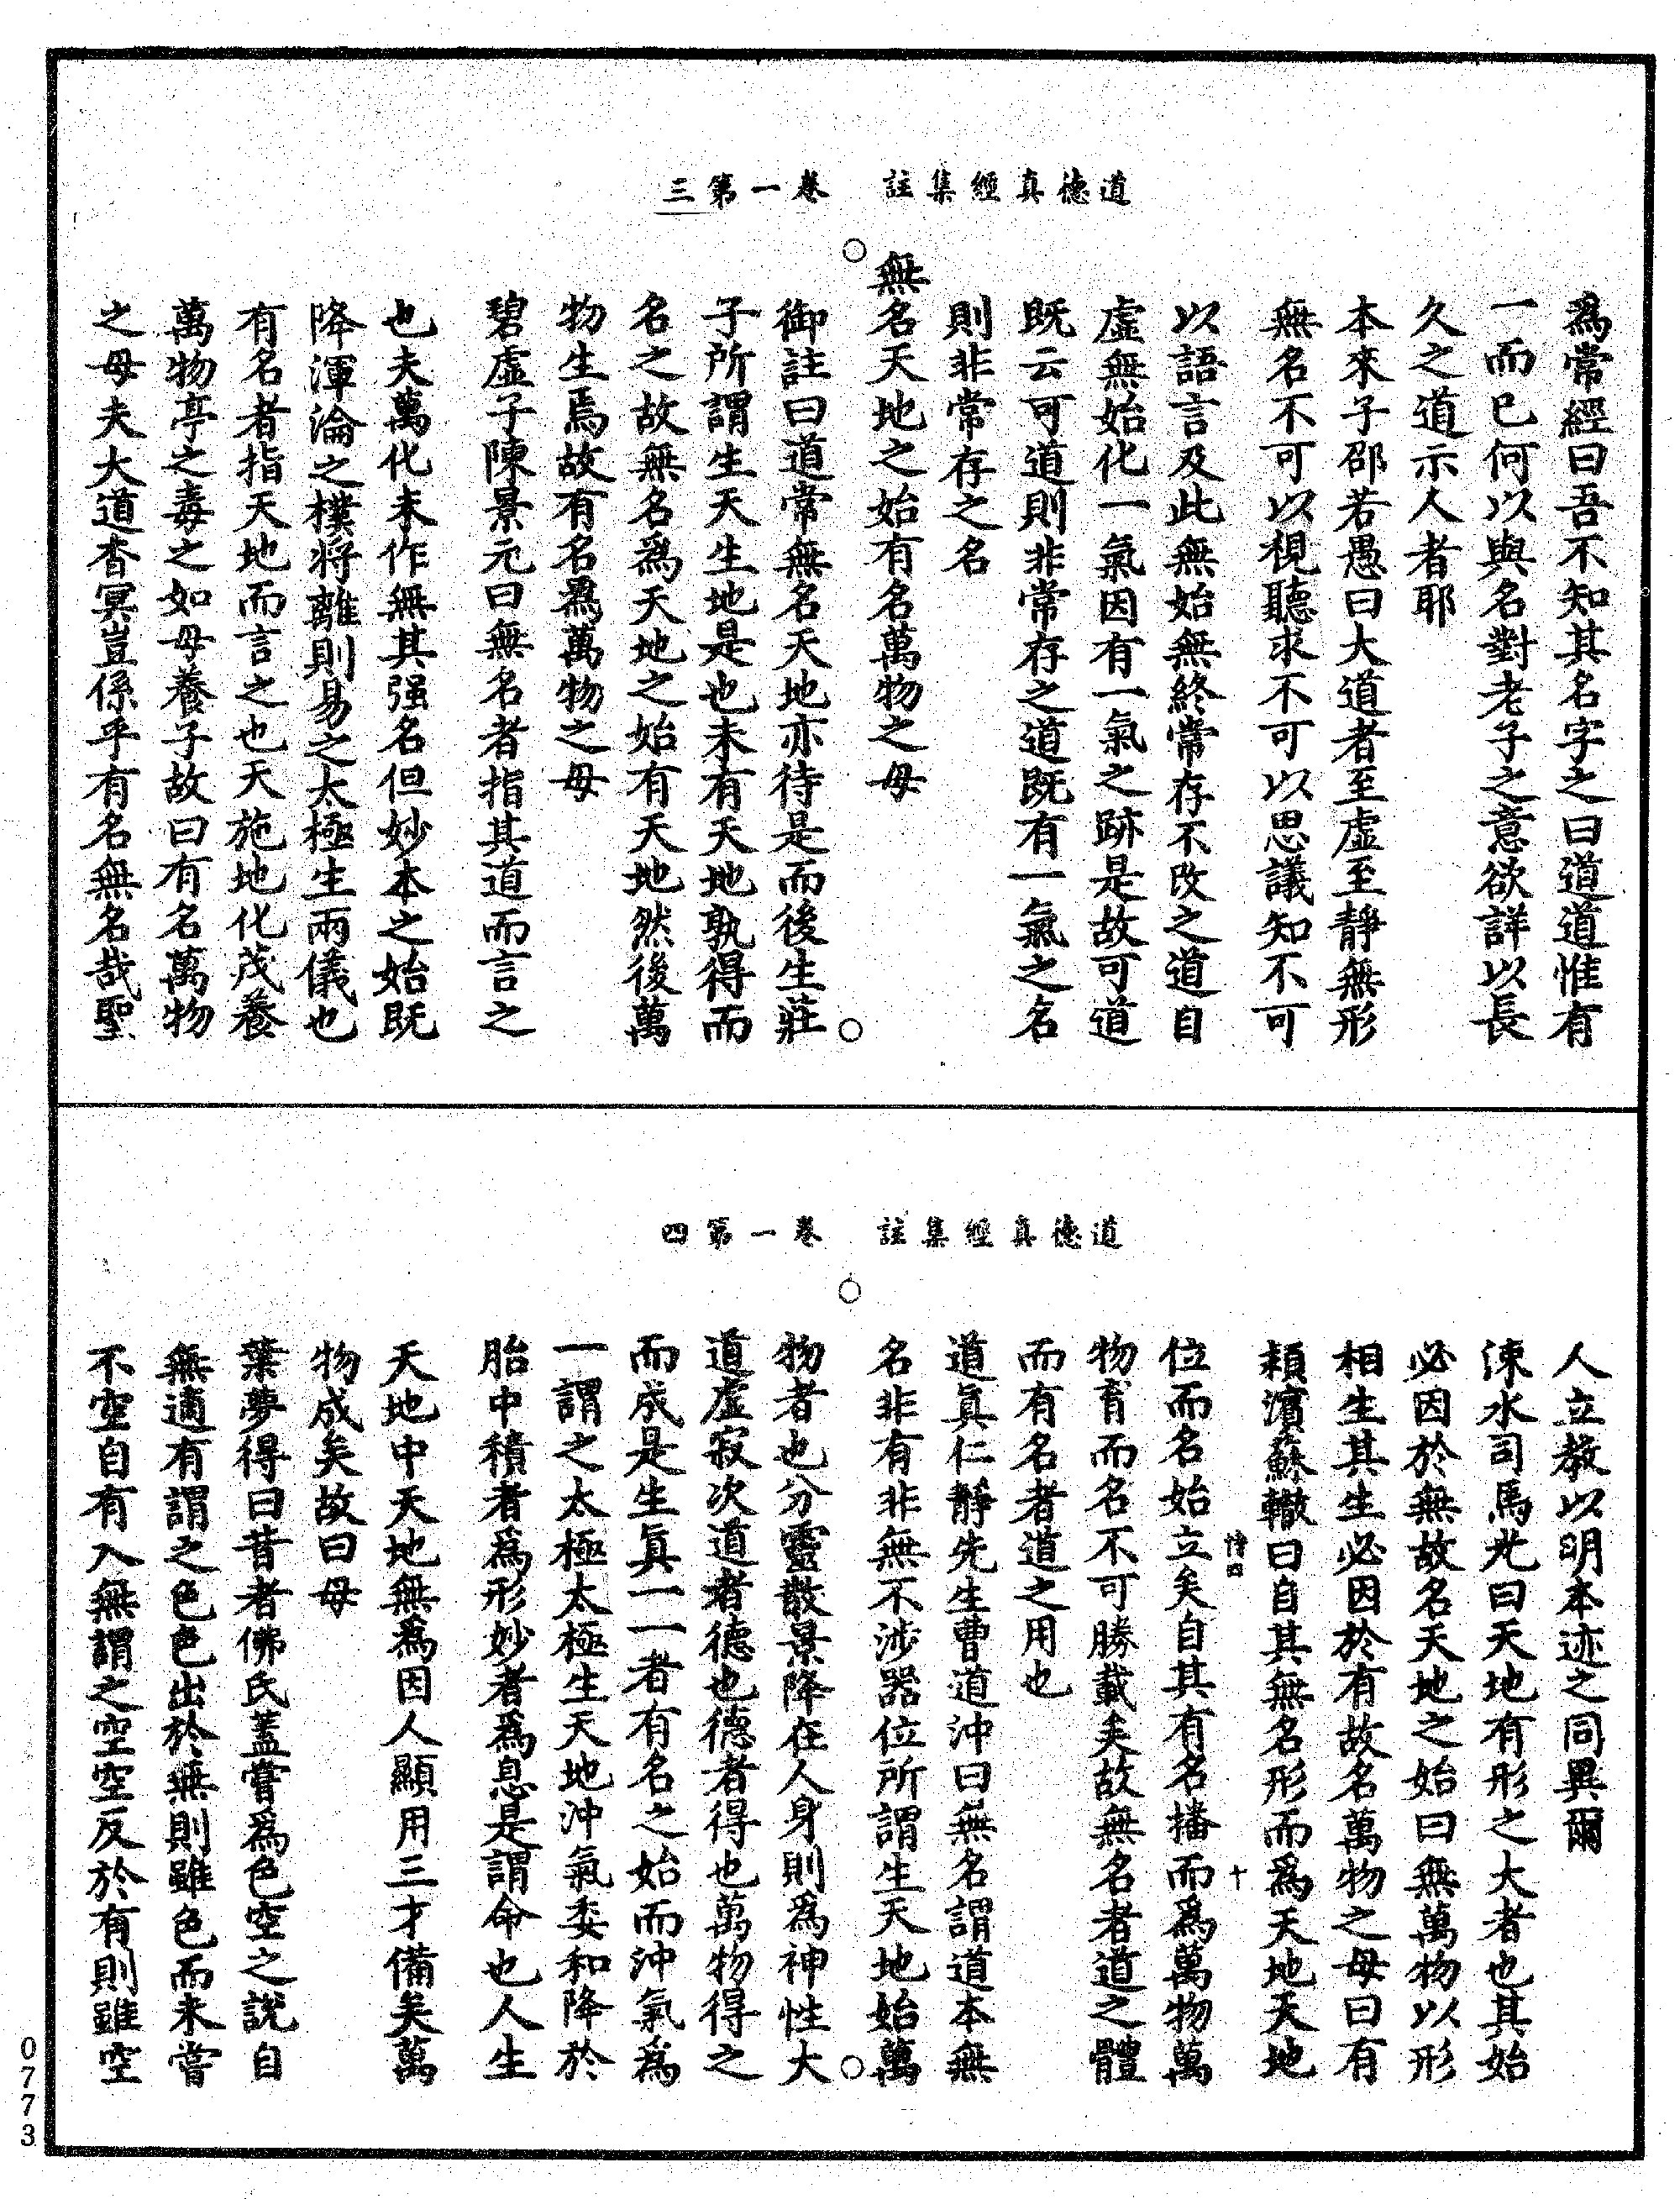 道德真經集註　卷一第三
爲常經曰吾不知其名字之曰道道惟有
一而已何以與名對老子之意欲詳以長
久之道示人者耶
本來子邵若愚曰大道者至虛至靜無形
無名不可以視聽求不可以思議知不可
以語言及此無始無終常存不改之道自
虛無始化一氣因有一氣之跡是故可道
既云可道則非常存之道既有一氣之名
則非常存之名
無名天地之始有名萬物之母
御註曰道常無名天地亦待是而後生莊
子所謂生天生地是也未有天地孰得而
名之故無名爲天地之始有天地然後萬
物生焉故有名爲萬物之母
碧虛子陳景元曰無名者指其道而言之
也夫萬化未作無其强名但妙本之始既
降渾淪之樸將離則易之太極生兩儀也
有名者指天地而言之也天施地化茂養
萬物亭之毒之如母養子故曰有名萬物
之母夫大道杳冥豈係乎有名無名哉聖
道德真經集註　卷一第四
人立教以明本迹之同異爾
涑水司馬光曰天地有形之大者也其始
必因於無故名天地之始曰無萬物以形
相生其生必因於有故名萬物之母曰有
潁濱蘇轍曰自其無名形而爲天地天地
位而名始立矣自其有名播而爲萬物萬
物育而名不可勝載矣故無名者道之體
而有名者道之用也
道真仁靜先生曹道沖曰無名謂道本無
名非有非無不涉器位所謂生天地始萬
物者也分靈散景降在人身則爲神性大
道虛寂次道者德也德者得也萬物得之
而成是生真一一者有名之始而沖氣爲
一謂之太極太極生天地沖氣委和降於
胎中積者爲形妙者爲息是謂命也人生
天地中天地無爲因人顯用三才備矣萬
物成矣故曰母
葉夢得曰昔者佛氏蓋嘗爲色空之說自
無適有謂之色色出於無則雖色而未嘗
不空自有入無謂之空空反於有則雖空
0773